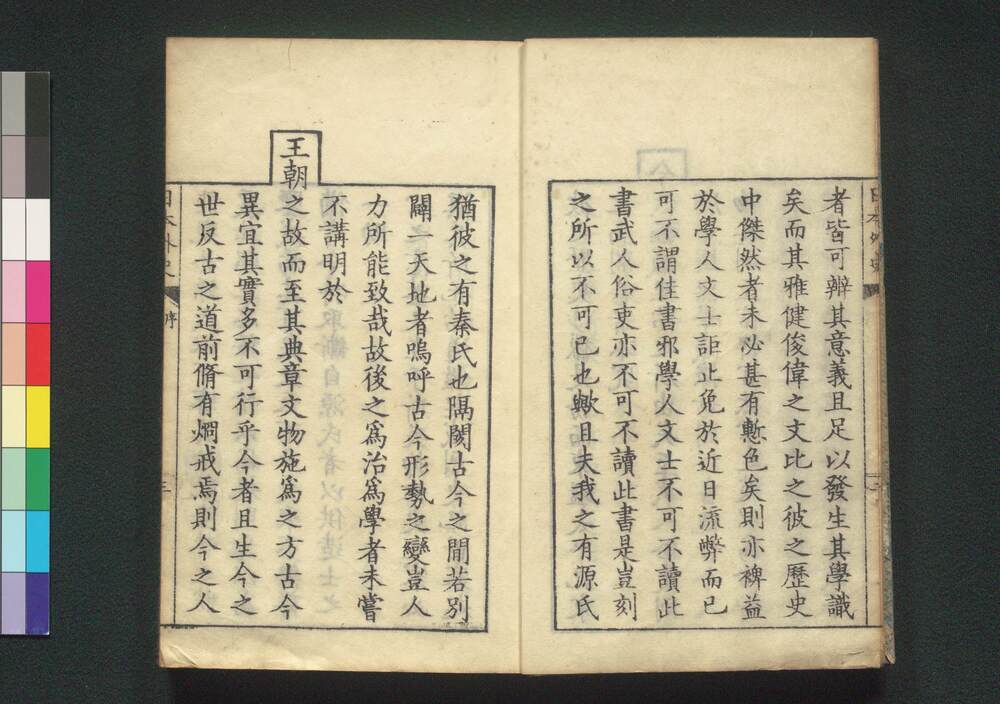 者皆可辨其意義且足以發生其學識
矣而其雅健俊偉之文比之彼之歷史
中傑然者未必甚有慙色矣則亦裨益
於學人文士詎止免於近日流弊而已
可不謂佳書邪學人文士不可不讀此
書武人俗吏亦不可不讀此書是豈刻
之所以不可已也歟且夫我之有源氏
猶彼之有秦氏也隔閡古今之間若別
闢一天地者嗚呼古今形勢之變豈人
力所能致哉故後之爲治爲學者未嘗
不講明於
王朝之故而至其典章文物施爲之方古今
異宜其實多不可行乎今者且生今之
世反古之道前脩有烱戒焉則今之人
日本外史
序
三